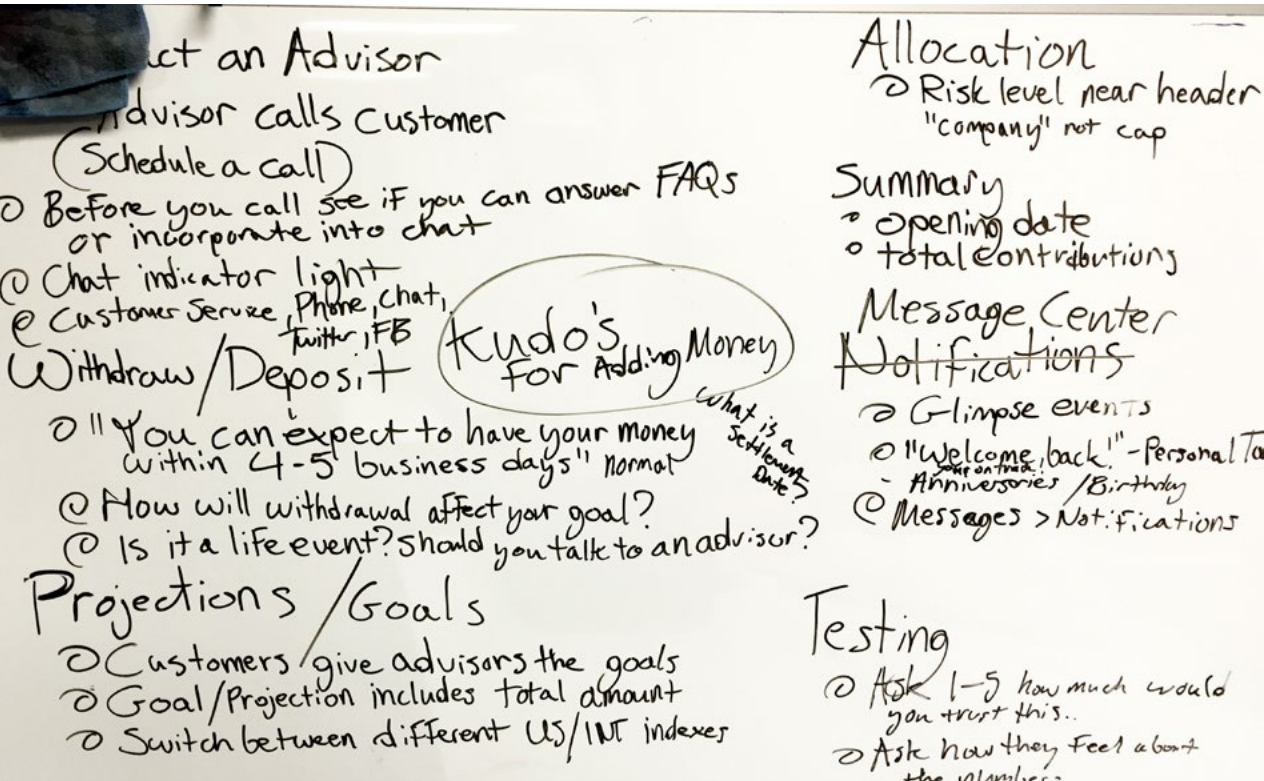 ct an Advisor
Advisor calls customer
(Schedule a call)
Before you call see if you can answer FAQs
or incorporate into chat
Chat indicator light
Customer Service, Phone, Chat,
Twitter, FB
Withdraw/Deposit
"You can expect to have your money
within 4-5 business days" normal
How will withdrawal affect your goal?
Is it a life event? should you talk to an advisor?
Kudo's
for Adding Money
What is a
Settlement
Date?
Projections/Goals
Customers give advisors the goals
Goal/Projection includes total amount
Switch between different US/INT indexes
Allocation
Risk level near header
"company" not cap
Summary
opening date
total contributions
Message Center
Notifications
Glimpse events
"Welcome back!" - Personal
your on track
- Anniversaries/Birthday
Messages > Notifications
Testing
Ask 1-5 how much would
you trust this..
Ask how they feel about
the